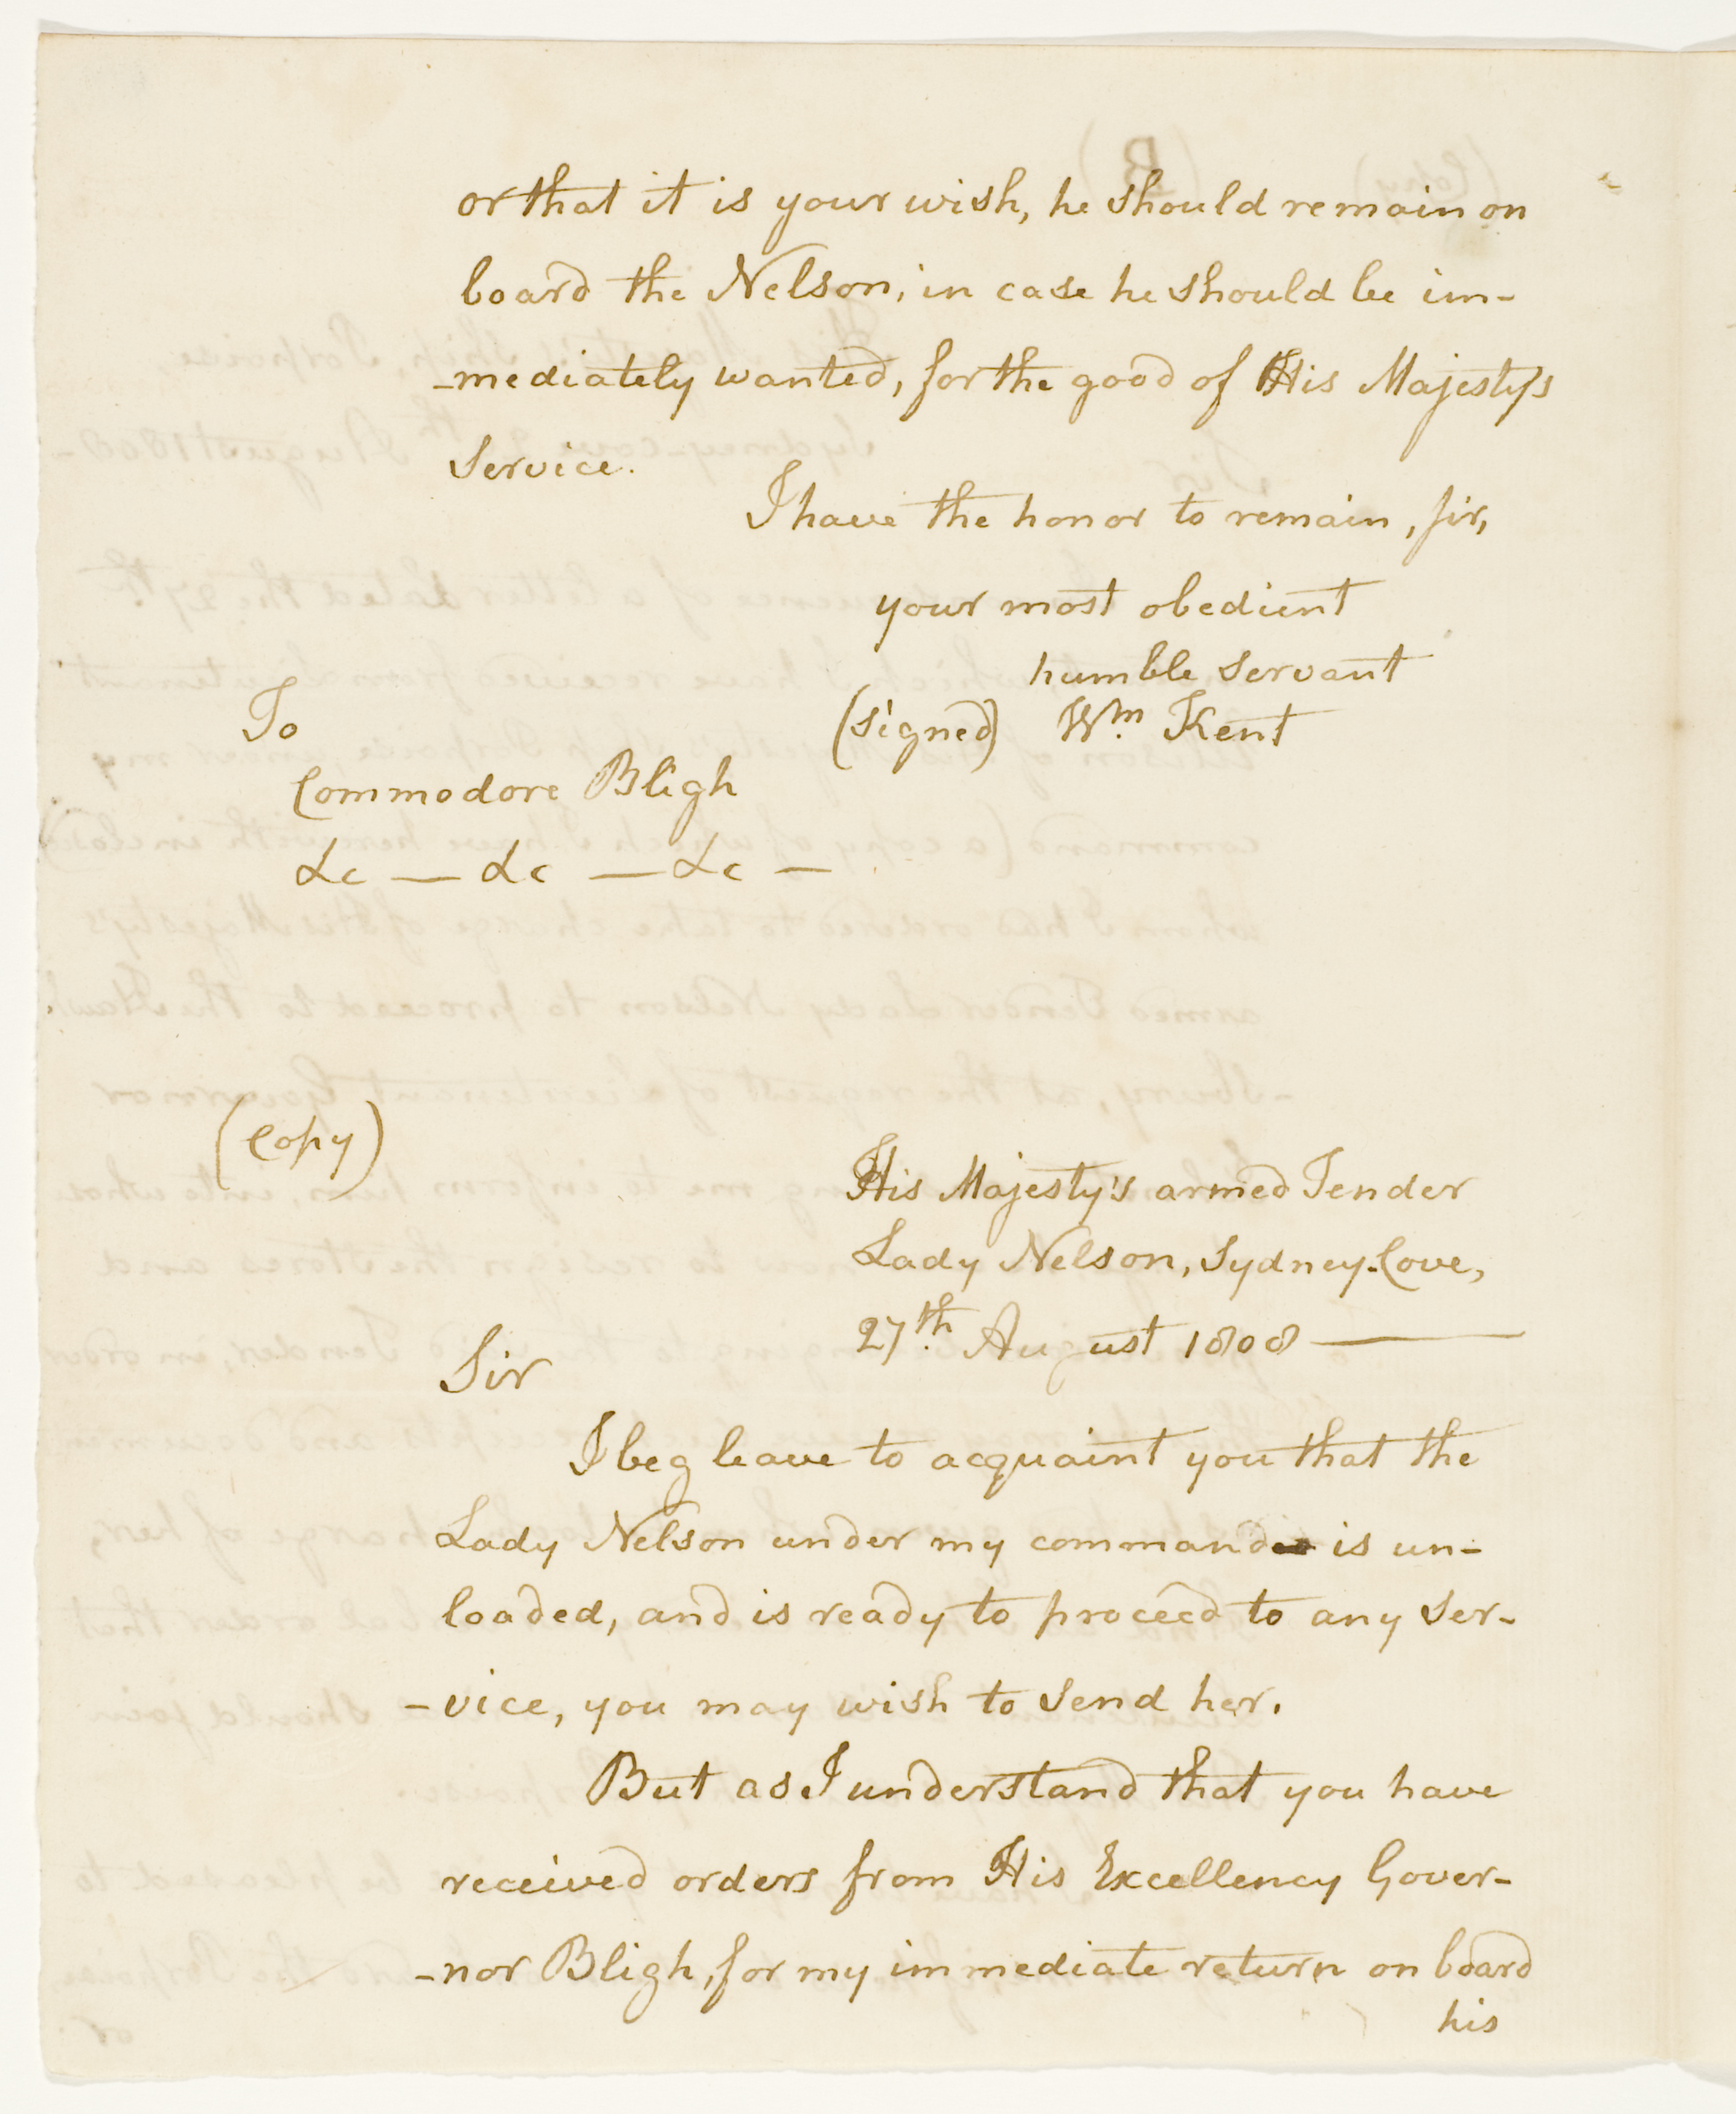 or that it is your wish, he should remain on
board the Nelson, in case he should be im-
-mediately wanted, for the good of His Majesty's
Service.
I have the honor to remain, Sir,
your most obedient
humble Servant
(signed) Wm. Kent
To
Commodore Bligh
&c — &c — &c —
(Copy)
His Majesty's armed Tender
Lady Nelson, Sydney-Cove,
27th. August 1808 —
Sir
I beg leave to acquaint you that the
Lady Nelson under my command is un-
loaded, and is ready to proceed to any Ser-
-vice, you may wish to send her.
But as I understand that you have
received orders from His Excellency Gover-
-nor Bligh, for my immediate return on board
his